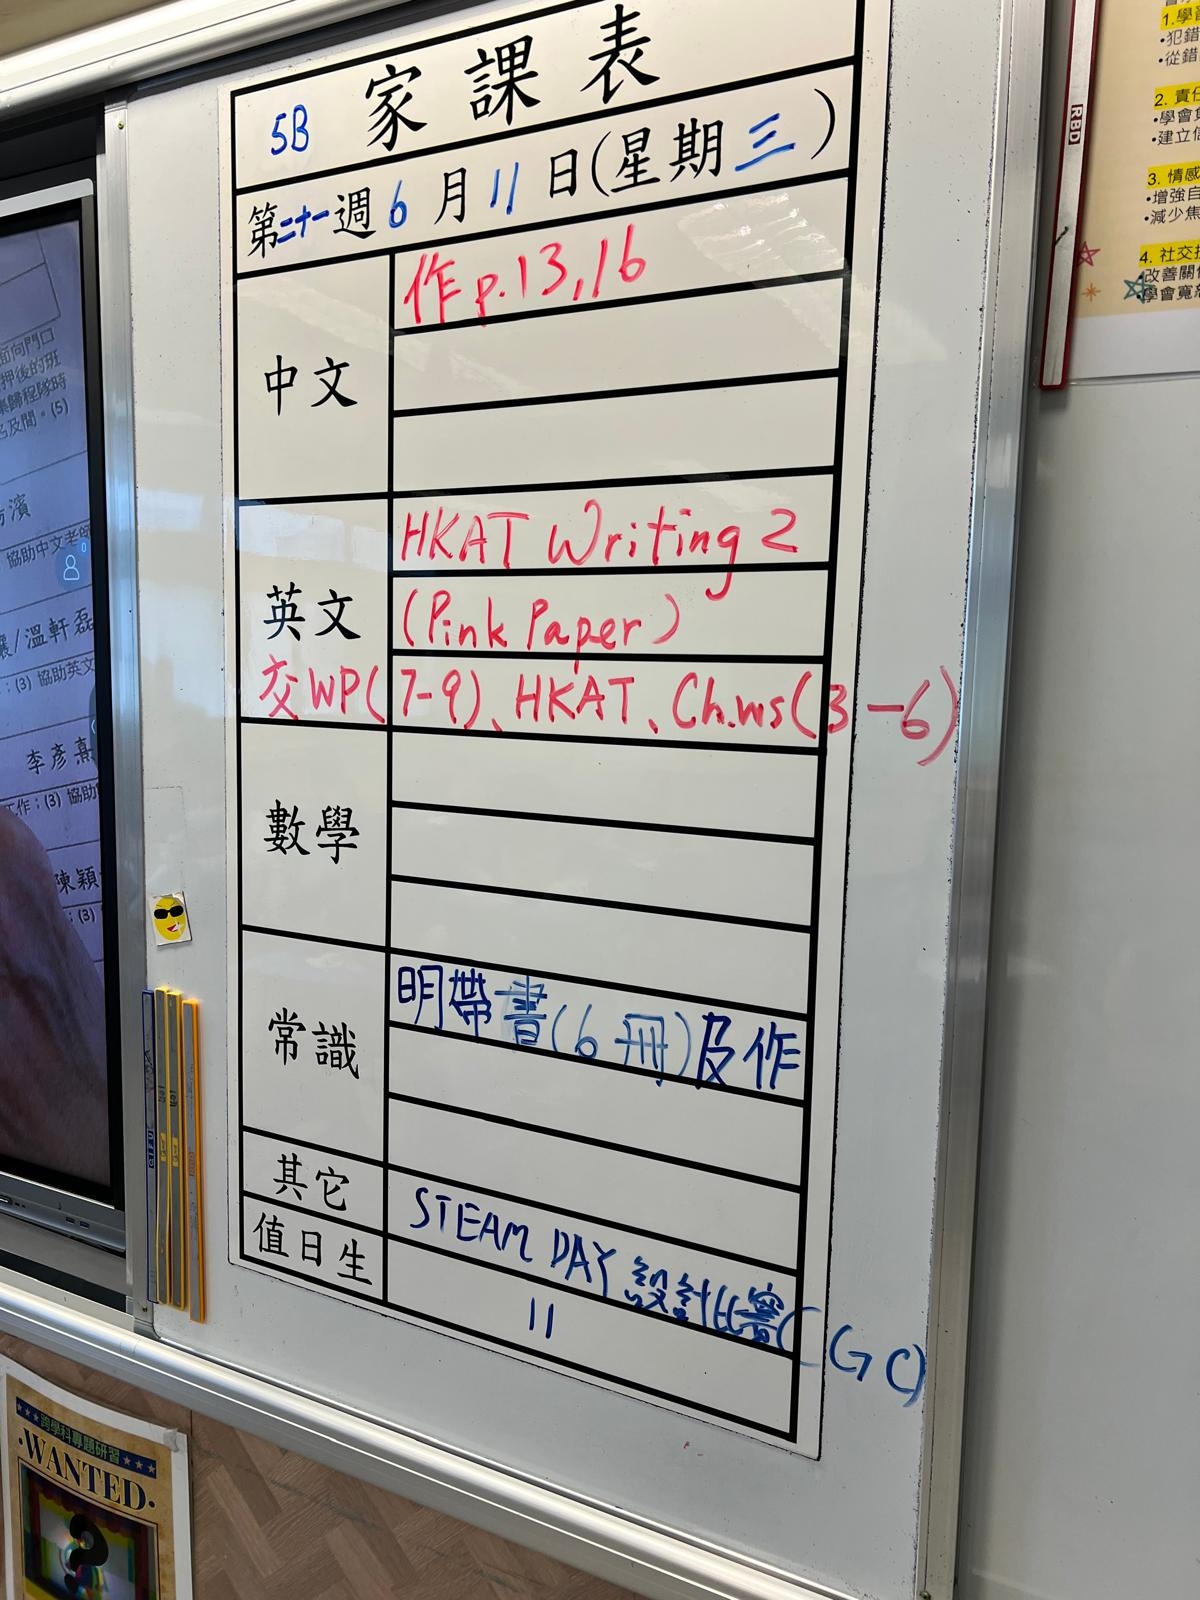 家課表
5B
第二十一週6月11日(星期三)
中文
作p.13,16
英文
HKAT Writing 2
(Pink Paper)
交WP(7-9)、HKAT、Ch.ws(3-6)
數學
常識
明帶書(6冊)及作
其它
STEAM DAY 設計比賽(GC)
值日生
11
RBD
1.學習
•犯錯
•從錯
2. 責任
•學會
•建立
3. 情感
•增強自
•減少焦
4. 社交技
•改善關係
•學會寬恕
面向門口
押後的班
集歸程隊時
名及間。(5)
濱
協助中文老師
/溫軒磊
;(3) 協助英文
李彥熹
工作;(3) 協助
陳穎
;(3)
跨學科專題研習
WANTED
?